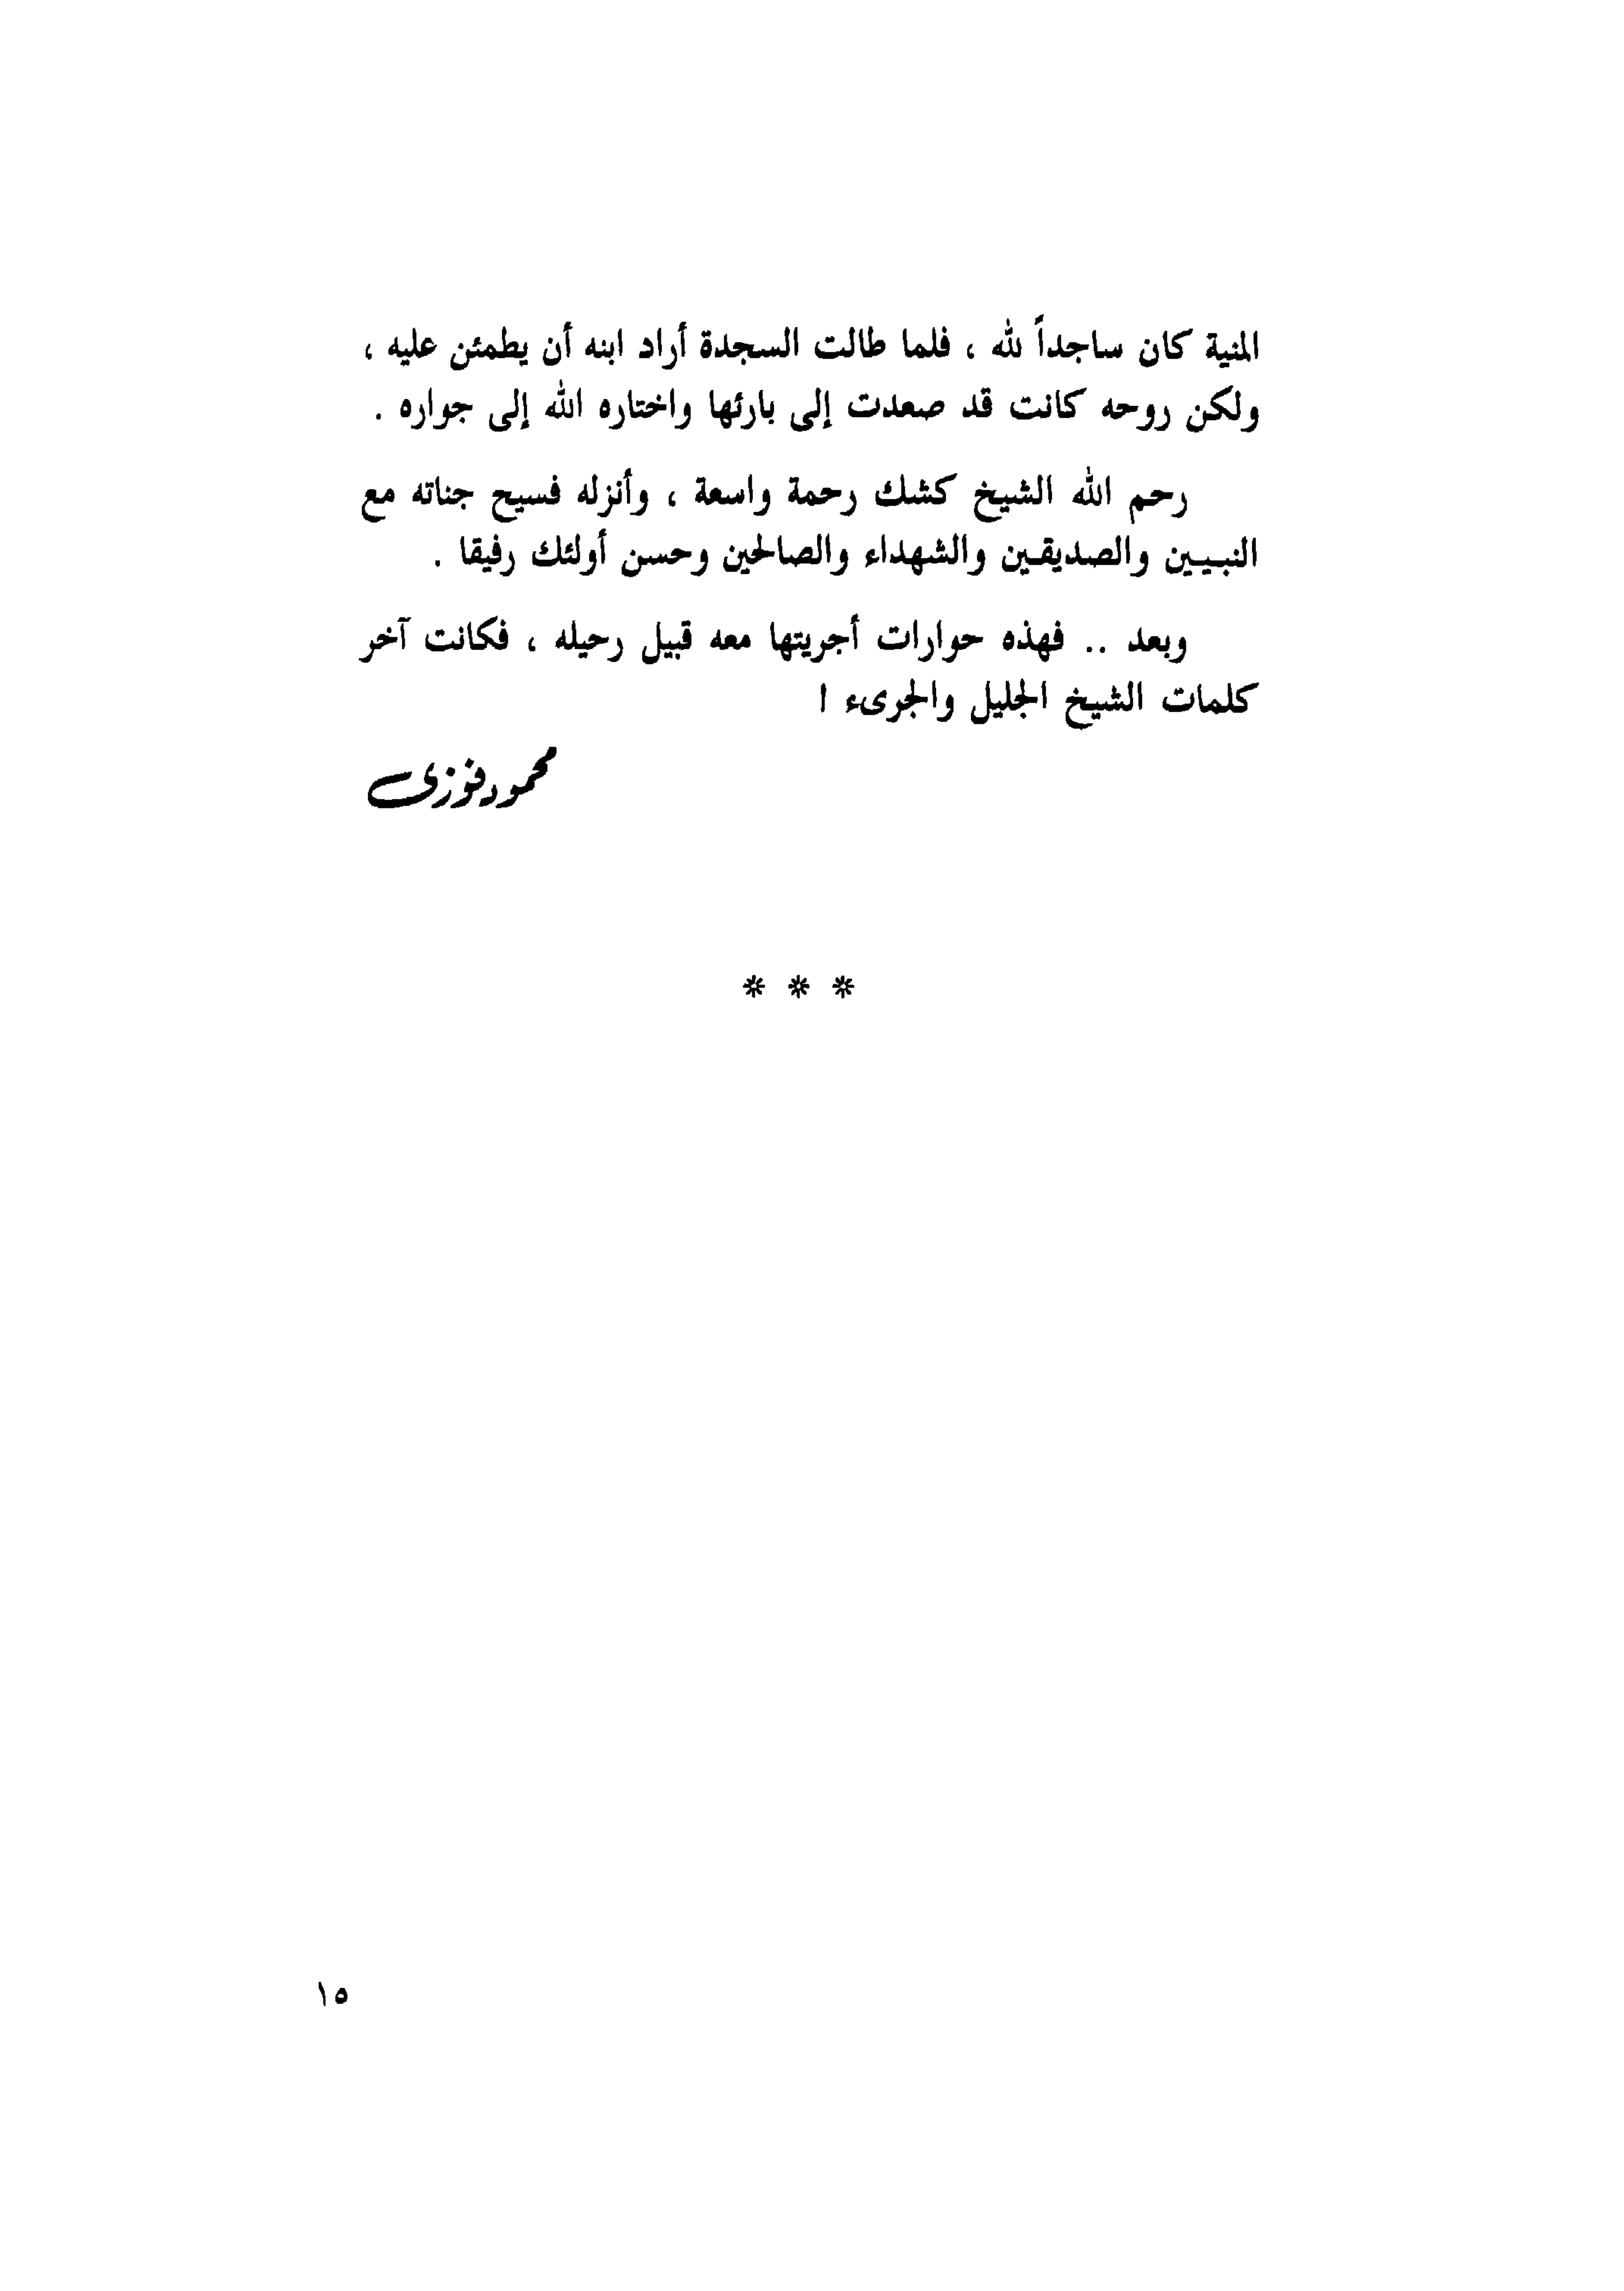 المنية كان ساجداً لله ، فلما طالت السجدة أراد ابنه أن يطمئن عليه ،
ولكن روحه كانت قد صعدت إلى بارئها واختاره الله إلى جواره .
رحم الله الشيخ كشك رحمة واسعة ، وأنزله فسيح جناته مع
النبيين والصديقين والشهداء والصالحين وحسن أولئك رفيقا .
وبعد .. فهذه حوارات أجريتها معه قبيل رحيله ، فكانت آخر
كلمات الشيخ الجليل والجرىء !
محمود فوزى
* * *
١٥